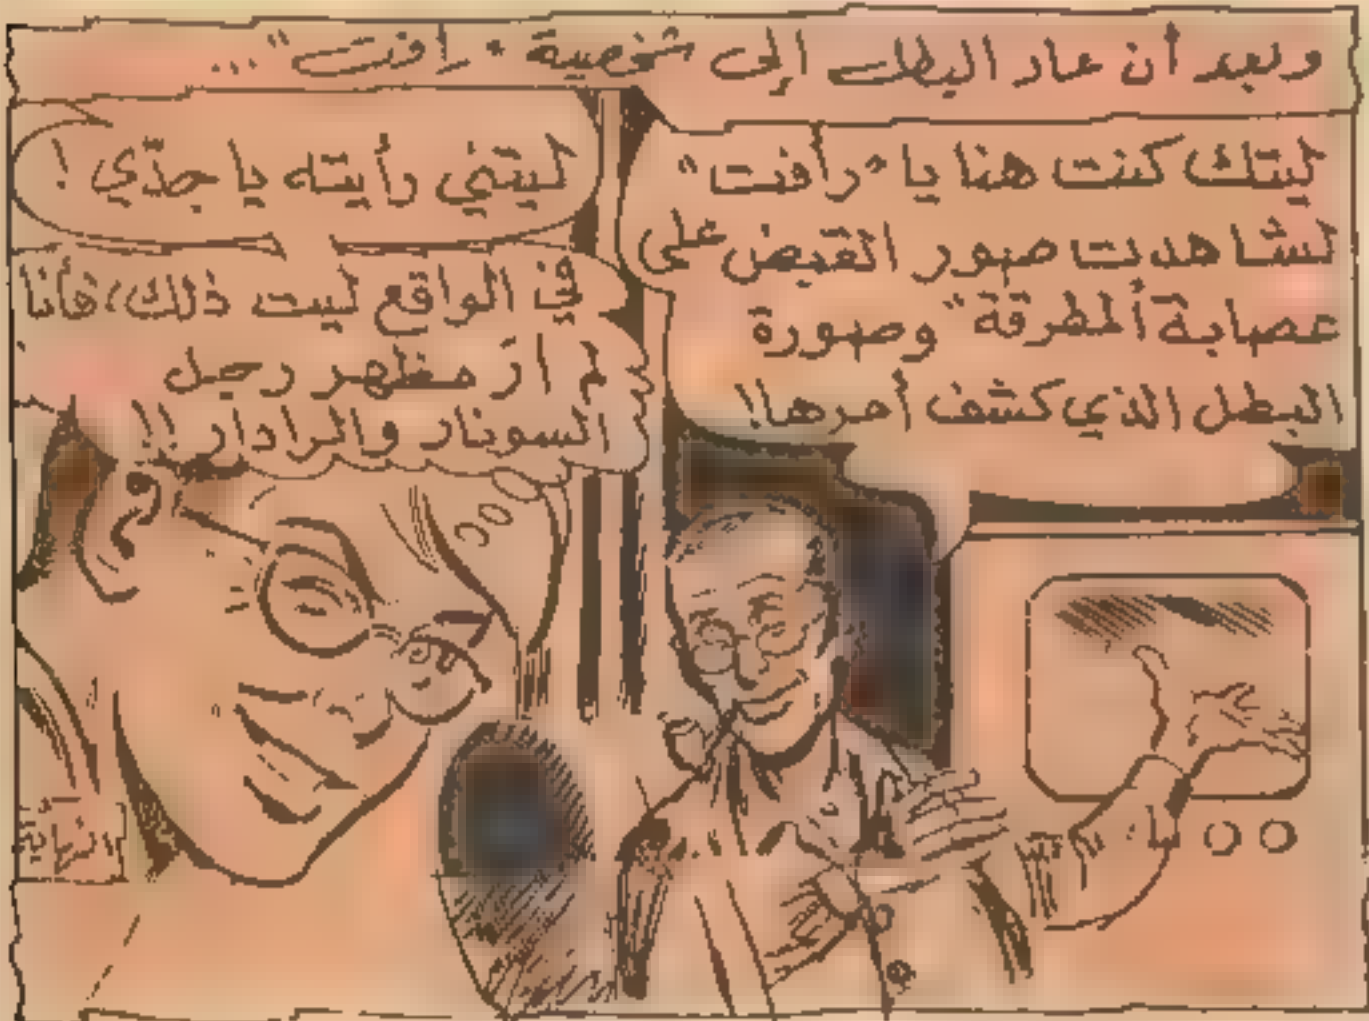 وبعد أن عاد البطل إلى شخصية "رأفت"...
ليتك كنت هنا يا "رأفت"
لشاهدت صور القبض على
عصابة "المطرقة" وصورة
البطل الذي كشف أمرها!!
ليتني رأيته يا جدّي !
في الواقع ليت ذلك، فأنا
لم أرَ مظهر رجل
السونار والرادار !!
النهاية